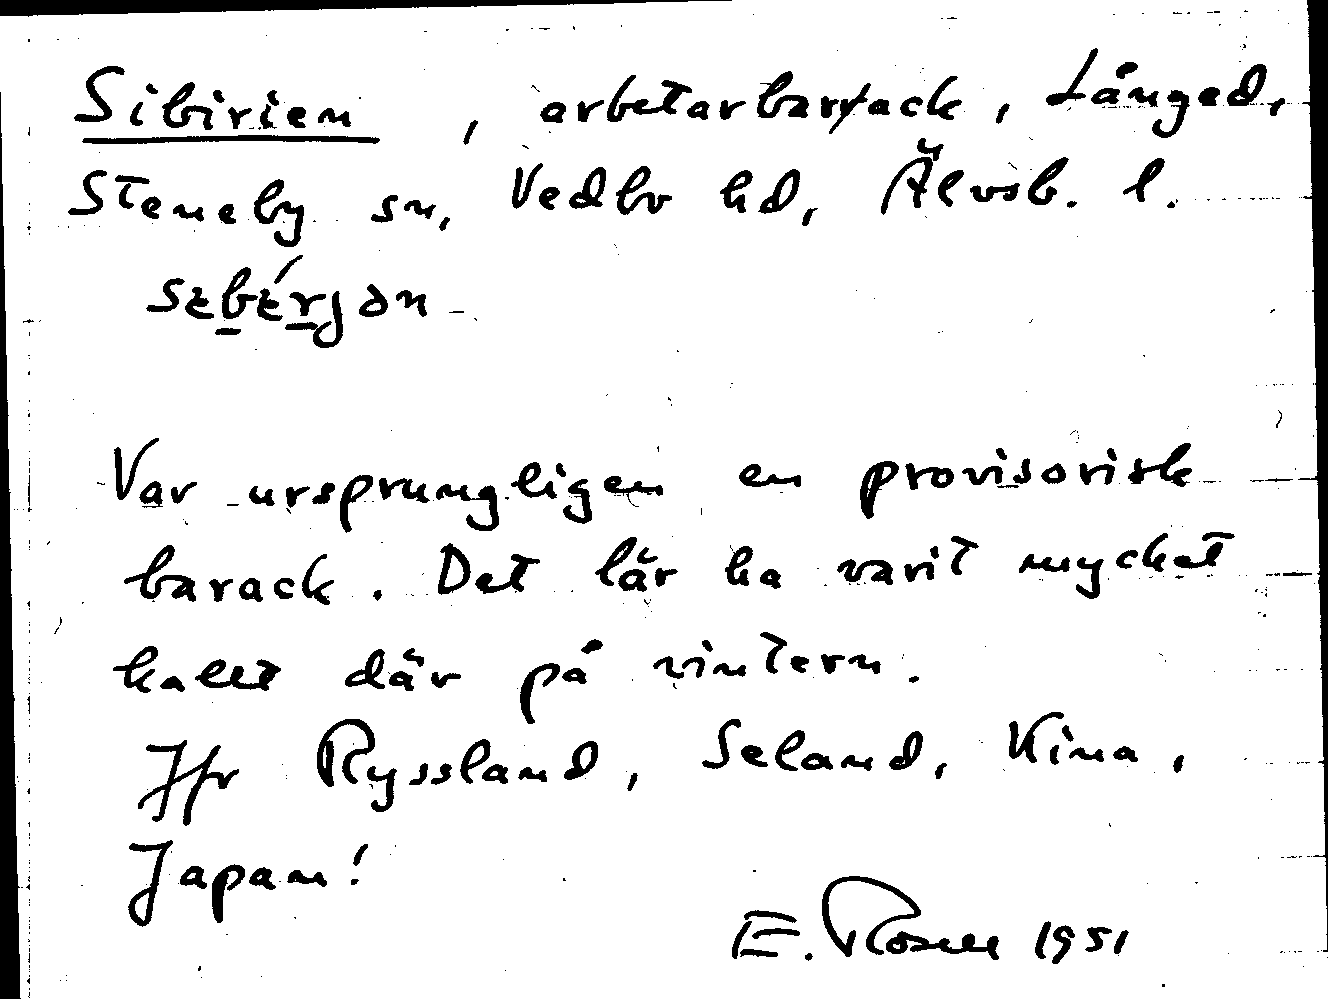 Sibirien, arbetarbarack, Långed,
Steneby sn, Vedbo hd, Älvsb. l.
Var ursprungligen en provisorisk
barack. Det lär ha varit mycket
kallt där på vintern.
Jfr Ryssland, Seland, Kina,
Japan!
E. Rosell 1951